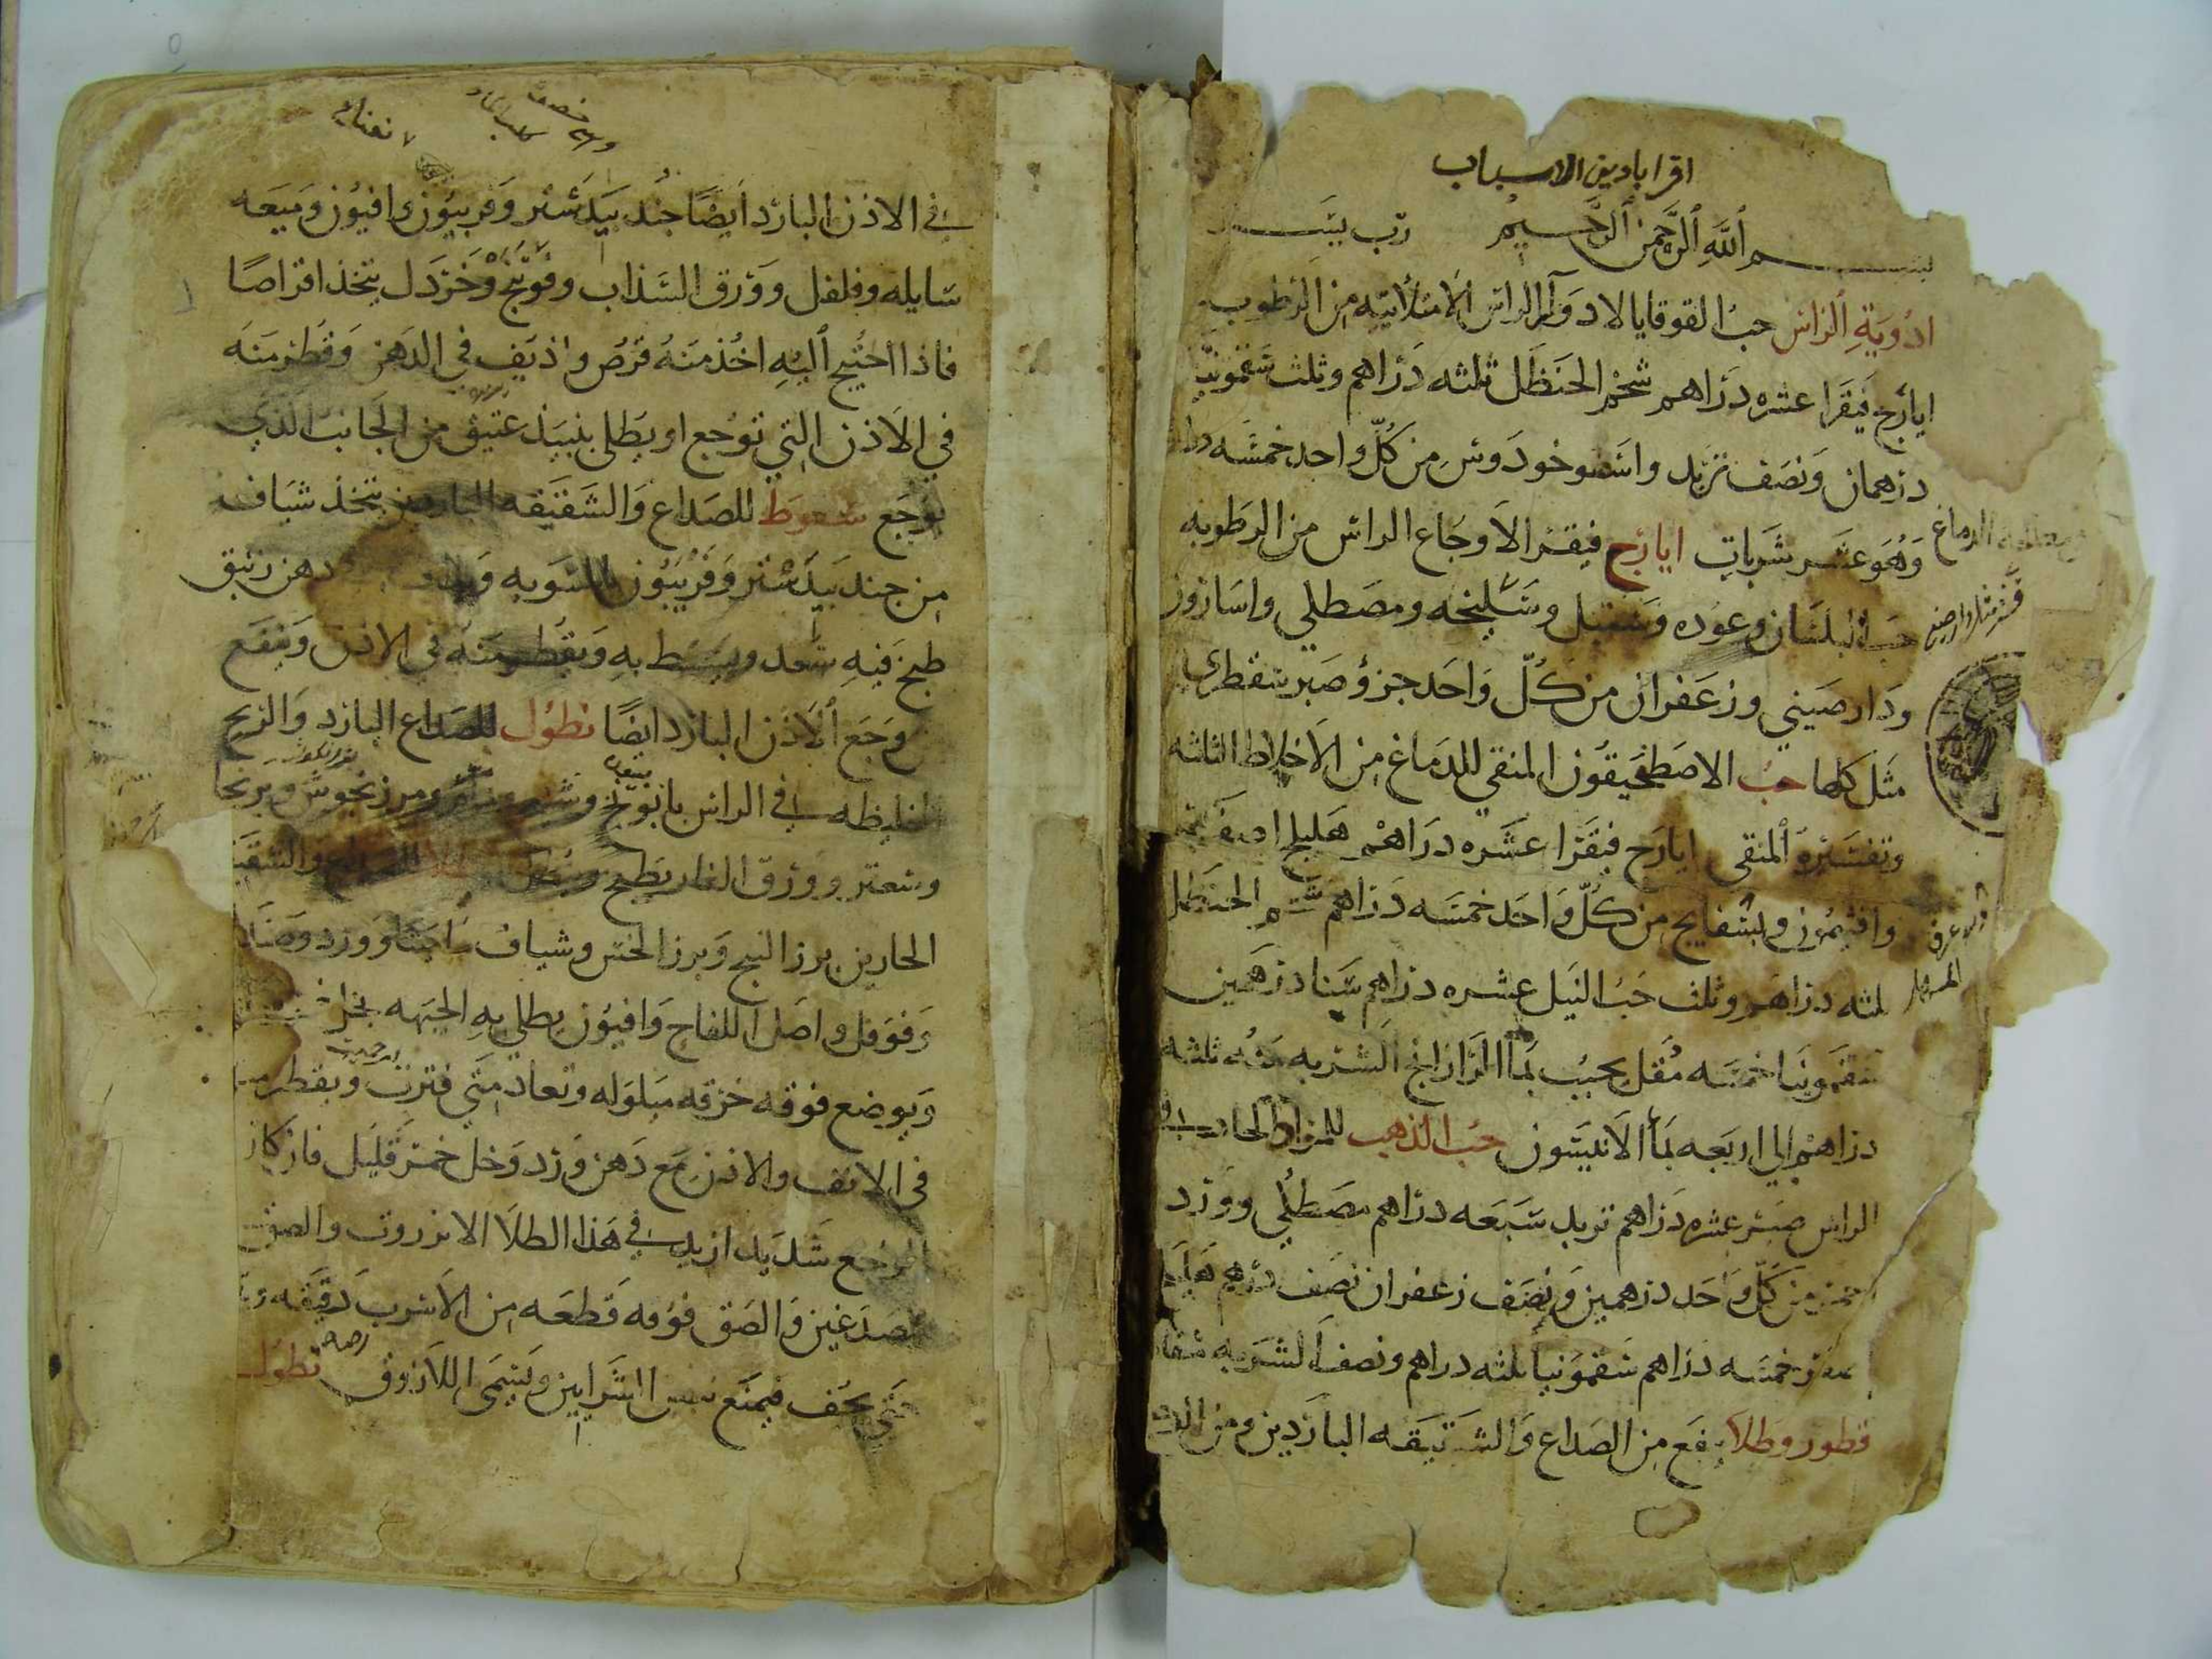 اقراباذين الاسباب
بسم الله الرحمن الرحيم رب يسر
ادوية الراس حب القوقايا لادواء الراس الامتلائيه من الرطوب
ايارج فيقرا عشره دراهم شحم الحنظل ثلثه دراهم وثلث سقمونيا
درهمان ونصف تربد واسطوخودوس من كل واحد خمسه
وهو عشر شربات ايارج فيقرا لاوجاع الراس من الرطوبه
حب البلسان وعوده وسنبل وسليخه ومصطكي واسارون
ودار صيني وزعفران من كل واحد جزؤ صبر سقطري
مثل كلها حب الاصطخيقون المنقي للدماغ من الاخلاط الثلثه
وتفسيره المنقي ايارج فيقرا عشره دراهم هليلج اصفر
وافتيمون وبسفايج من كل واحد خمسه دراهم شحم الحنظل
ثلثه دراهم وثلث حب النيل عشره دراهم سنا درهمين
سقمونيا خمسه مقل يحبب بماالرازيانج الشربه منه ثلثه
دراهم الي اربعه بماالانيسون حب الذهب
الراس صبر عشره دراهم تربد سبعه دراهم مصطكي وورد
من كل واحد درهمين ونصف زعفران نصف درهم
خمسه دراهم سقمونيا ثلثه دراهم ونصف الشربه
قطور وطلا ينفع من الصداع والشقيقه الباردين ومن
في الاذن البارد ايضا جندبيدستر وفربيون وافيون وميعه
سايله وفلفل وورق السذاب وفوتنج وخردل يتخذ اقراصا
فاذا احتيج اليه اخذ منه قرص واذيف في الدهن وقطر منه
في الاذن التي توجع او يطلي بنبيذ عتيق من الجانب الذي
يوجع سعوط للصداع والشقيقه الباردين يتخذ شياف
من جندبيدستر وفربيون بالسويه دهن زنبق
طبخ فيه سعد ويسعط به ويقطر منه في الاذن وينفع
وجع الاذن البارد ايضا نطول للصداع البارد والريح
الغليظه في الراس بابونج ومرزنجوش
وسعتر وورق الغار يطبخ والشقيقه
الحارين بزر البنج وبزر الخس وشياف ماميثا وورد وصندل
وفوفل واصل اللفاح وافيون يطلي به الجبهه بخل
ويوضع فوقه خرقه مبلوله وتعاد متي فترت ويقطر
في الانف والاذن مع دهن ورد وخل خمر قليل فان كان
الوجع شديد ازيد في هذا الطلا الانزروت والصق
بالصدغين والصق فوقه قطعه من الاسرب دقيقه
حتي يجف فيمنع الشرايين ويسمي اللازوق نطول